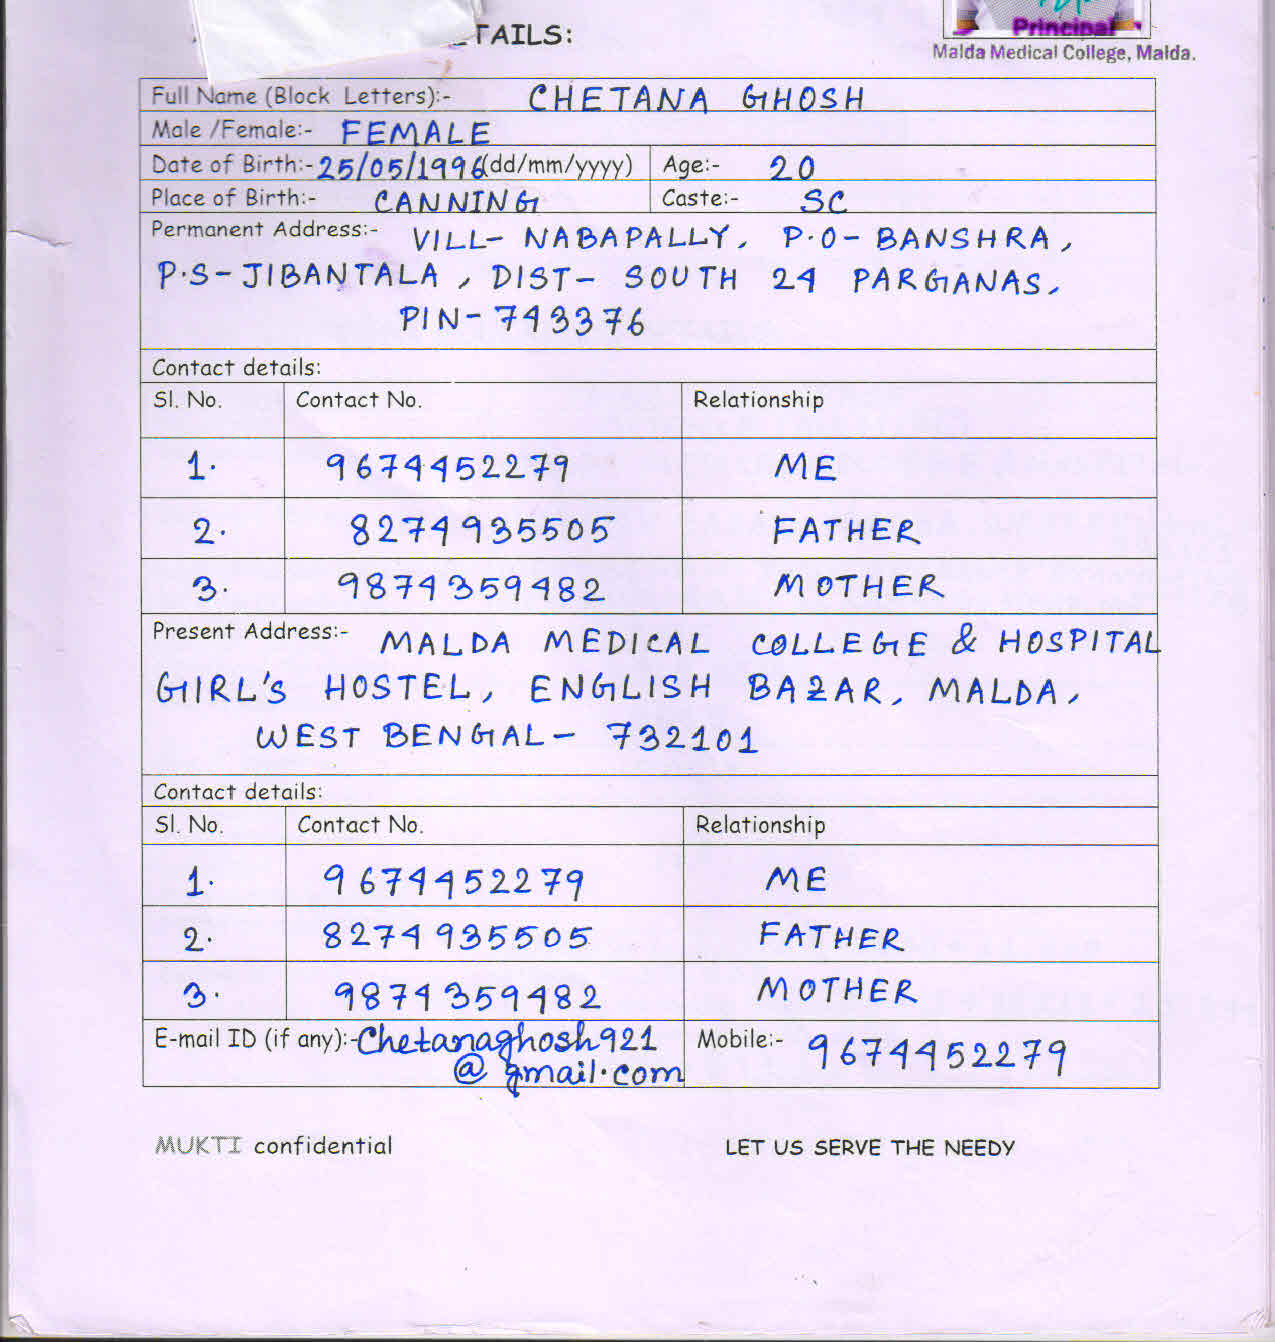 TAILS:
Principal
Malda Medical College, Malda.
Full Name (Block Letters):- CHETANA GHOSH
Male /Female:- FEMALE
Date of Birth:- 25/05/1996 (dd/mm/yyyy) Age:- 20
Place of Birth:- CANNING Caste:- SC
Permanent Address:- VILL- NABAPALLY, P.O- BANSHRA,
P.S- JIBANTALA, DIST- SOUTH 24 PARGANAS,
PIN- 743376
Contact details:
Sl. No. Contact No. Relationship
1. 9674452279 ME
2. 8274935505 FATHER
3. 9874359482 MOTHER
Present Address:- MALDA MEDICAL COLLEGE & HOSPITAL
GIRL'S HOSTEL, ENGLISH BAZAR, MALDA,
WEST BENGAL- 732101
Contact details:
Sl. No. Contact No. Relationship
1. 9674452279 ME
2. 8274935505 FATHER
3. 9874359482 MOTHER
E-mail ID (if any):- Chetanaghosh921 Mobile:- 9674452279
@ gmail.com
MUKTI confidential LET US SERVE THE NEEDY